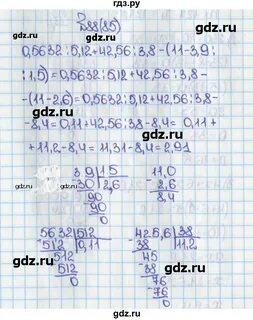 гдз.ру
№88(85)
0,5632:5,12+42,56:3,8-(11-3,9:
:1,5)=0,5632:5,12+42,56:3,8-
-(11-2,6)=0,5632:5,12+42,56:3,8-
-8,4=0,11+42,56:3,8-8,4= 0,11+
+11,2-8,4=11,31-8,4=2,91
39 | 15   11,0
30 | 2,6   2,6
90   8,4
90
0
5632 | 512   425,6 | 38
512 | 0,11   38 | 11,2
512   45
512   38
0   76
76
0
gdz.ru
gdz.ru
gdz.ru
gdz.ru
gdz.ru
gdz.ru